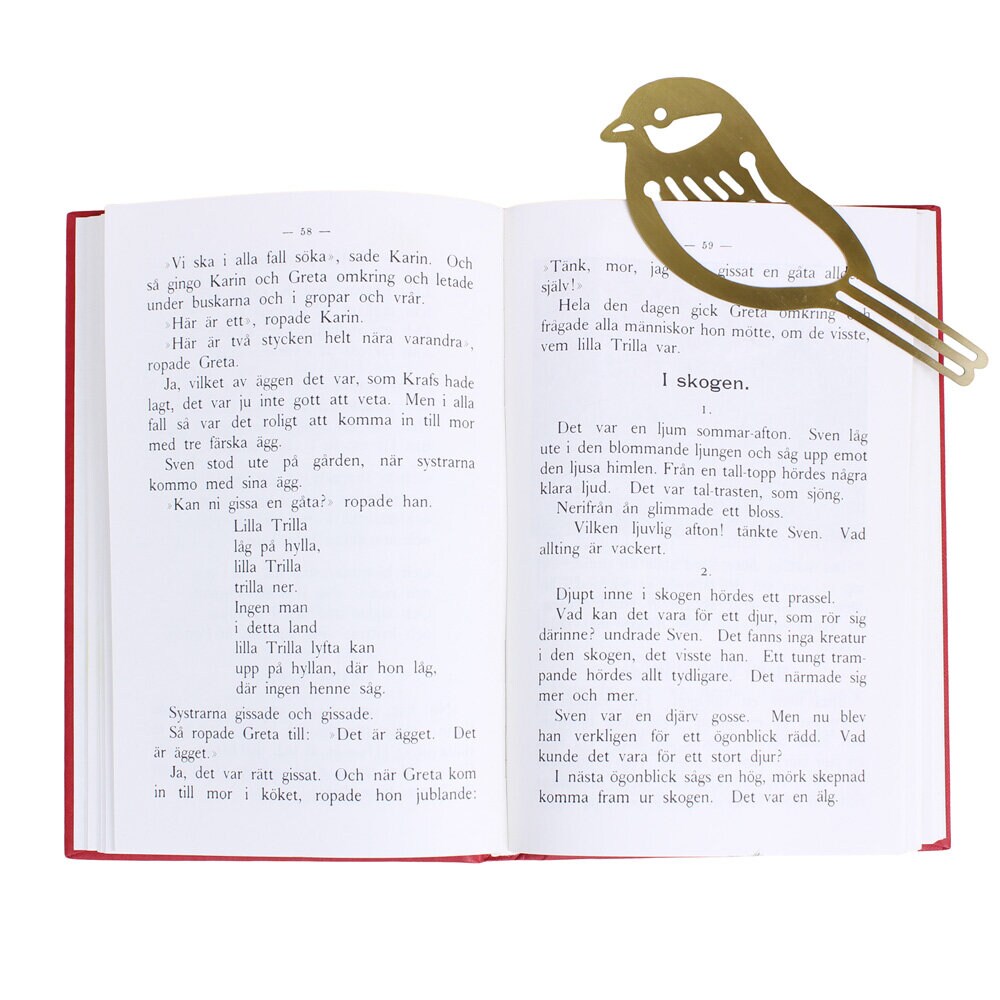 — 58 —
»Vi ska i alla fall söka», sade Karin. Och
så gingo Karin och Greta omkring och letade
under buskarna och i gropar och vrår.
»Här är ett», ropade Karin.
»Här är två stycken helt nära varandra»,
ropade Greta.
Ja, vilket av äggen det var, som Krafs hade
lagt, det var ju inte gott att veta. Men i alla
fall så var det roligt att komma in till mor
med tre färska ägg.
Sven stod ute på gården, när systrarna
kommo med sina ägg.
»Kan ni gissa en gåta?» ropade han.
Lilla Trilla
låg på hylla,
lilla Trilla
trilla ner.
Ingen man
i detta land
lilla Trilla lyfta kan
upp på hyllan, där hon låg,
där ingen henne såg.
Systrarna gissade och gissade.
Så ropade Greta till: »Det är ägget. Det
är ägget.»
Ja, det var rätt gissat. Och när Greta kom
in till mor i köket, ropade hon jublande:
— 59 —
»Tänk, mor, jag gissat en gåta
själv!»
Hela den dagen gick Greta omkring och
frågade alla människor hon mötte, om de visste,
vem lilla Trilla var.
I skogen.
1.
Det var en ljum sommar-afton. Sven låg
ute i den blommande ljungen och såg upp emot
den ljusa himlen. Från en tall-topp hördes några
klara ljud. Det var tal-trasten, som sjöng.
Nerifrån ån glimmade ett bloss.
Vilken ljuvlig afton! tänkte Sven. Vad
allting är vackert.
2.
Djupt inne i skogen hördes ett prassel.
Vad kan det vara för ett djur, som rör sig
därinne? undrade Sven. Det fanns inga kreatur
i den skogen, det visste han. Ett tungt tram-
pande hördes allt tydligare. Det närmade sig
mer och mer.
Sven var en djärv gosse. Men nu blev
han verkligen för ett ögonblick rädd. Vad
kunde det vara för ett stort djur?
I nästa ögonblick sågs en hög, mörk skepnad
komma fram ur skogen. Det var en älg.